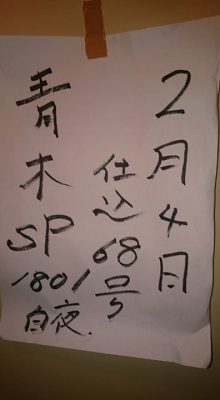 2月4日
仕込68号
青木SP
180/
白夜.